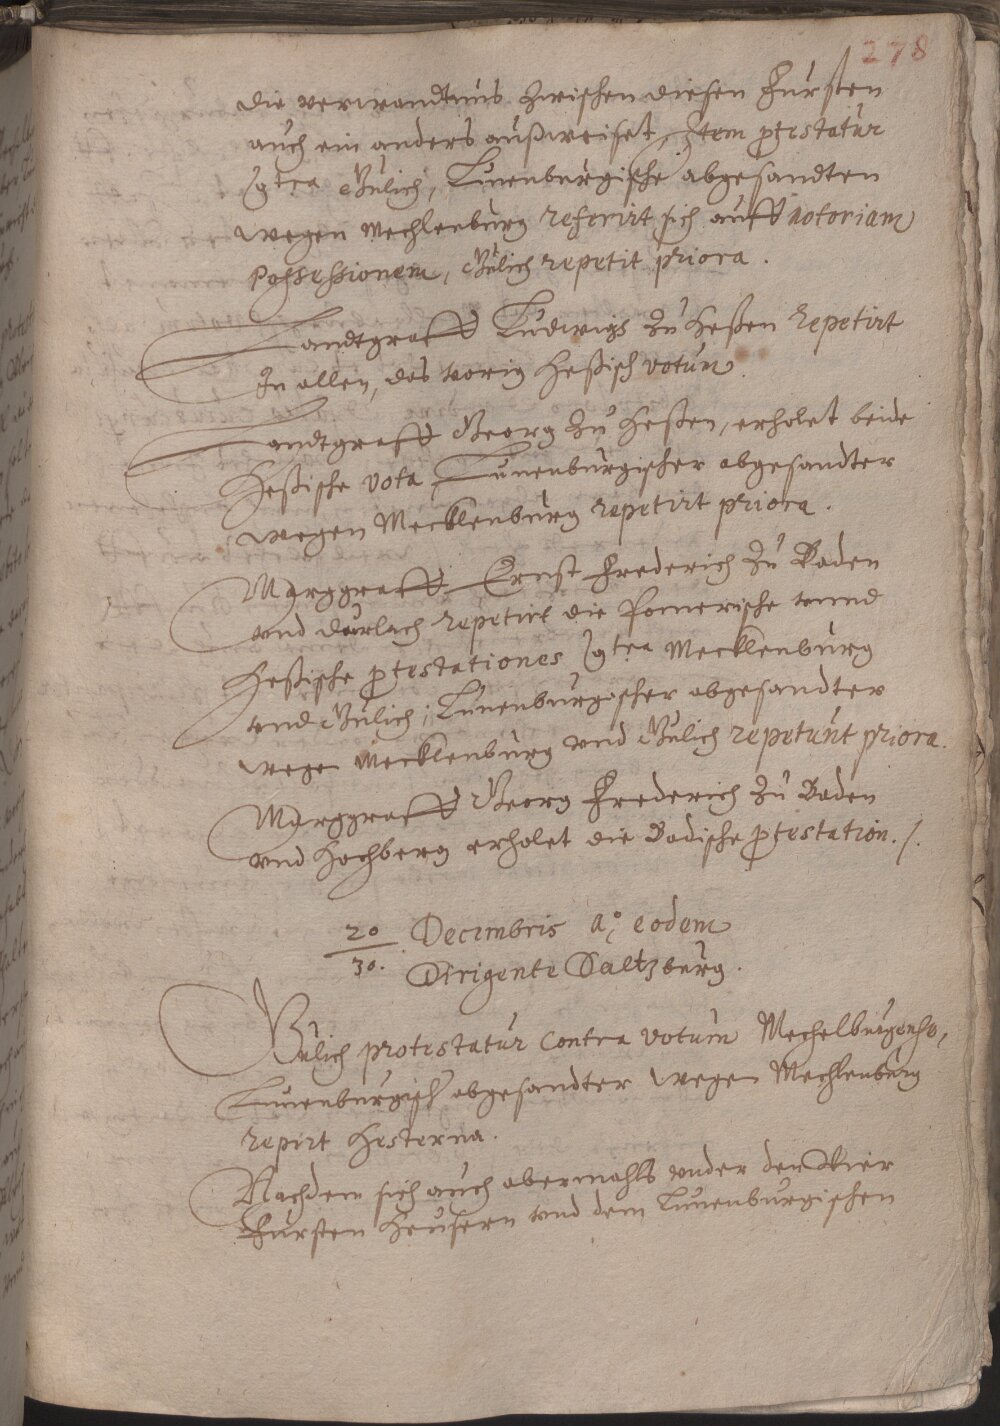 278
die verwandtnus zwischen diesen Fürsten
auch ein anders außweiset, Item ptestatur
9tra Gülich, Lünenbürgische abgesandten
wegen Mechlenbürg referirt sich auff notoriam
Possessionem, Gülich repetit priora.
Landtgraff Ludwigs zü Heßen repetirt
In allen, das vorig Heßisch votum.
Landtgraff Georg zü Heßen, erholet beide
Heßische vota, Lünenbürgischer abgesandter
wegen Mecklenbürg repetirt priora.
Marggraff Ernst Frederich zü Baden
vnd Durlach repetirt die Pomerische vnnd
Heßische ptestationes 9tra Mecklenbürg
vnd Gülich; Lünenbürgischer abgesandter
wegen Mecklenbürg vnd Gülich repetunt priora.
Marggraff Georg Frederich zü Baden
vnd Hochberg erholet die Badische ptestation. /.
20/30. Decembris Ao. eodem
Dirigente Saltzbürg.
Gülich protestatur contra votum Mechelbürgense,
Lünenbürgisch abgesandter wegen Mechlenbürg
repirt hesterna.
Nachdem sich auch abermahls vnder den Vier
Fürsten Heüsern vnd dem Lünenbürgischen